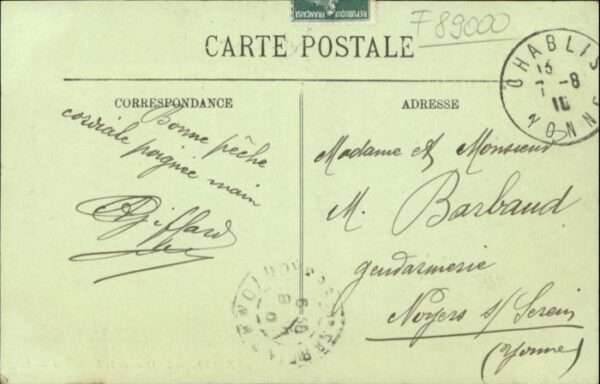 REPUBLIQUE FRANÇAISE
F 89000
CARTE POSTALE
CHABLIS
7 -8
10
YONNE
CORRESPONDANCE
Bonne pêche
cordiale poignée main
ADRESSE
Madame et Monsieur
M. Barbaud
gendarmerie
Noyers s/ Serein
(Yonne)